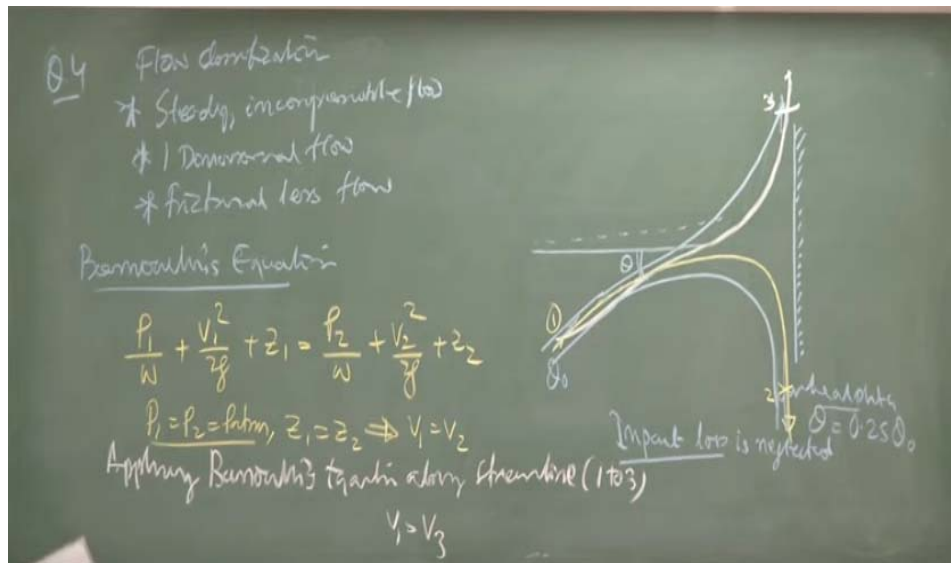 Q4 Flow Classification
* Steady, incompressible flow
* 1 Dimensional flow
* frictional less flow
Bernoulli's Equation
P₁/w + V₁²/2g + Z₁ = P₂/w + V₂²/2g + Z₂
P₁ = P₂ = Patm, Z₁ = Z₂ ⇒ V₁ = V₂
Applying Bernoulli's Equation along streamline (1 to 3)
V₁ = V₃
3
θ
①
Q₀
2
Q = 0.25Q₀
Impact loss is neglected